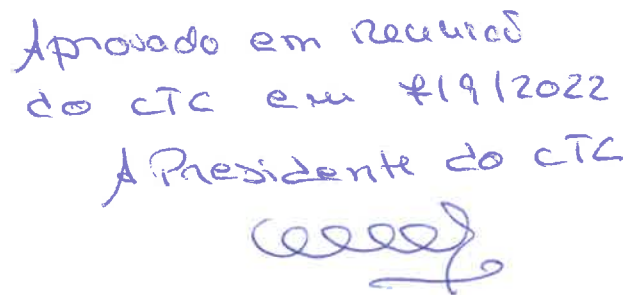 Aprovado em reunião
do CTC em 7/9/2022
A Presidente do CTC